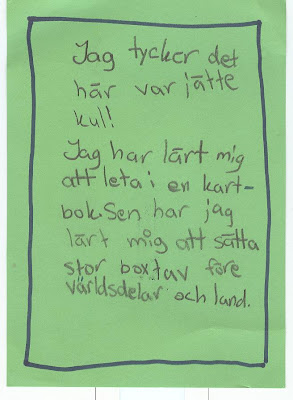 Jag tycker det
här var jätte
kul!
Jag har lärt mig
att leta i en kart-
bok.Sen har jag
lärt mig att sätta
stor boxtav före
världsdelar och land.